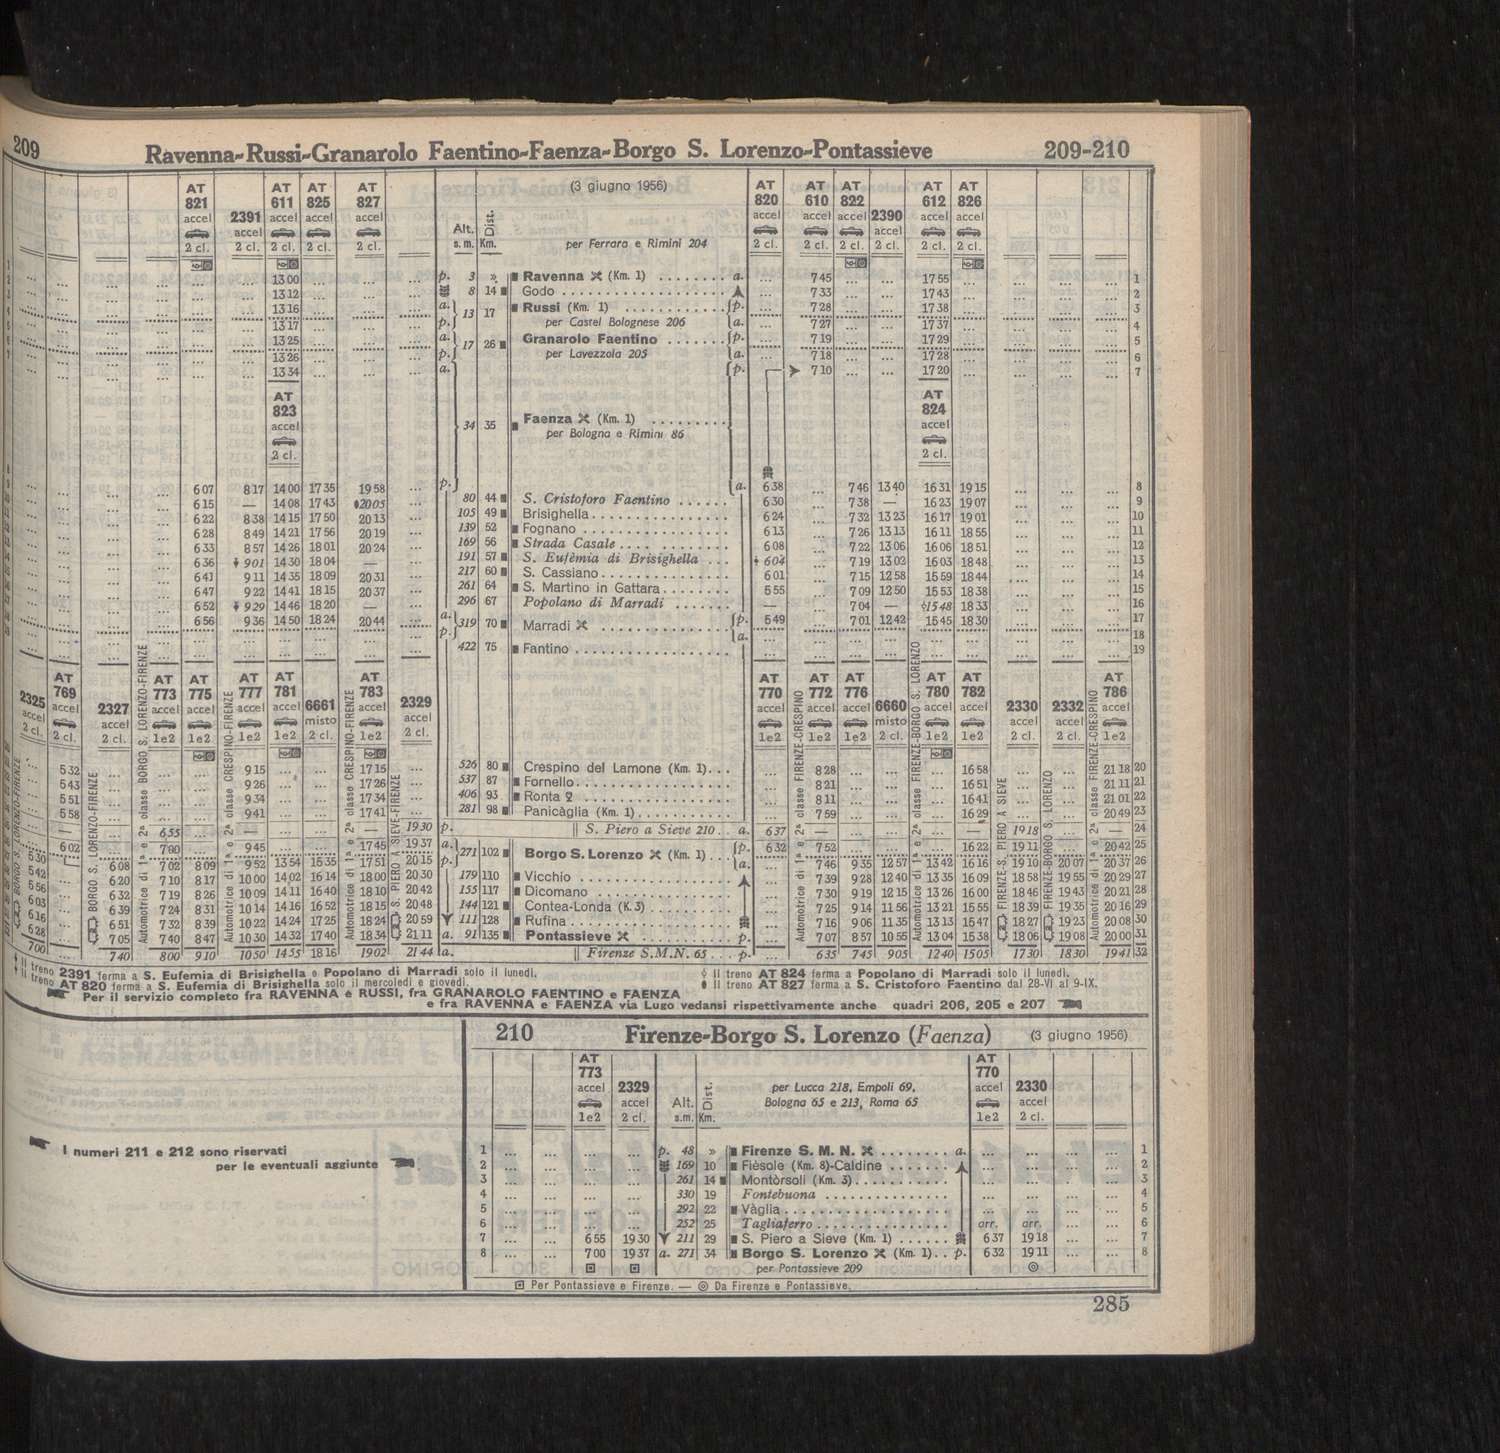 209
Ravenna-Russi-Granarolo Faentino-Faenza-Borgo S. Lorenzo-Pontassieve
209-210
AT 821 accel 2 cl.
2391 accel 2 cl.
AT 611 accel 2 cl.
AT 825 accel 2 cl.
AT 827 accel 2 cl.
Alt. s. m.
Dist. Km.
(3 giugno 1956)
per Ferrara e Rimini 204
AT 820 accel 2 cl.
AT 610 accel 2 cl.
AT 822 accel 2 cl.
2390 accel 2 cl.
AT 612 accel 2 cl.
AT 826 accel 2 cl.
... 13 00 ... p. 3 » Ravenna (Km. 1) ........ a. ... 7 45 ... 17 55 ... 1
... 13 12 ... 8 14 Godo .................. ... 7 33 ... 17 43 ... 2
... 13 16 ... a. 13 17 Russi (Km. 1) ............ p. ... 7 28 ... 17 38 ... 3
... 13 17 ... p. per Castel Bolognese 206 a. ... 7 27 ... 17 37 ... 4
... 13 25 ... a. 17 26 Granarolo Faentino ....... p. ... 7 19 ... 17 29 ... 5
... 13 26 ... p. per Lavezzola 205 a. ... 7 18 ... 17 28 ... 6
... 13 34 ... a. p. 7 10 ... 17 20 ... 7
AT 823 accel 2 cl.
34 35 Faenza (Km. 1) .........
per Bologna e Rimini 86
AT 824 accel 2 cl.
6 07 8 17 14 00 17 35 19 58 ... p. a. 6 38 ... 7 46 13 40 16 31 19 15 ... 8
6 15 — 14 08 17 43 20 05 ... 80 44 S. Cristoforo Faentino ...... 6 30 ... 7 38 — 16 23 19 07 ... 9
6 22 8 38 14 15 17 50 20 13 ... 105 49 Brisighella ............... 6 24 ... 7 32 13 23 16 17 19 01 ... 10
6 28 8 49 14 21 17 56 20 19 ... 139 52 Fognano ................ 6 13 ... 7 26 13 13 16 11 18 55 ... 11
6 33 8 57 14 26 18 01 20 24 ... 169 56 Strada Casale .... 6 08 ... 7 22 13 06 16 06 18 51 ... 12
6 36 9 01 14 30 18 04 — ... 191 57 S. Eufèmia di Brisighella ... 6 04 ... 7 19 13 02 16 03 18 48 ... 13
6 41 9 11 14 35 18 09 20 31 ... 217 60 S. Cassiano .............. 6 01 ... 7 15 12 58 15 59 18 44 ... 14
6 47 9 22 14 41 18 15 20 37 ... 261 64 S. Martino in Gattara ........ 5 55 ... 7 09 12 50 15 53 18 38 ... 15
6 52 9 29 14 46 18 20 — ... 296 67 Popolano di Marradi ....... — ... 7 04 — 15 48 18 33 ... 16
6 56 9 36 14 50 18 24 20 44 ... a. 319 70 Marradi ............. p. 5 49 ... 7 01 12 42 15 45 18 30 ... 17
p. a. ... 18
422 75 Fantino ................ ... 19
2325 accel 2 cl.
AT 769 accel 2 cl.
2327 accel 2 cl.
AT 773 accel 1e2
AT 775 accel 1e2
AT 777 accel 1e2
AT 781 accel 1e2
6661 misto 2 cl.
AT 783 accel 1e2
2329 accel 2 cl.
AT 770 accel 1e2
AT 772 accel 1e2
AT 776 accel 1e2
6660 misto 2 cl.
AT 780 accel 1e2
AT 782 accel 1e2
2330 accel 2 cl.
2332 accel 2 cl.
AT 786 accel 1e2
BORGO S. LORENZO-FIRENZE
BORGO S. LORENZO-FIRENZE
Automotrice di 1ª e 2ª classe BORGO S. LORENZO-FIRENZE
Automotrice di 1ª e 2ª classe CRESPINO-FIRENZE
Automotrice di 1ª e 2ª classe CRESPINO-FIRENZE
S. PIERO A SIEVE-FIRENZE
Automotrice di 1ª e 2ª classe FIRENZE-CRESPINO
Automotrice di 1ª e 2ª classe FIRENZE-BORGO S. LORENZO
FIRENZE-S. PIERO A SIEVE
FIRENZE-BORGO S. LORENZO
Automotrice di 1ª e 2ª classe FIRENZE-CRESPINO
... 5 32 ... 9 15 ... 17 15 ... 526 80 Crespino del Lamone (Km. 1) ... ... 8 28 ... 16 58 ... 21 18 20
... 5 43 ... 9 26 ... 17 26 ... 537 87 Fornello ................ ... 8 21 ... 16 51 ... 21 11 21
... 5 51 ... 9 34 ... 17 34 ... 406 93 Ronta ............... ... 8 11 ... 16 41 ... 21 01 22
... 5 58 ... 9 41 ... 17 41 ... 281 98 Panicàglia (Km. 1) .......... ... 7 59 ... 16 29 ... 20 49 23
... — ... 6 55 ... — ... — 19 30 p. S. Piero a Sieve 210 .. a. 6 37 — ... — 19 18 ... — 24
... 6 02 ... 7 00 ... 9 45 ... 17 45 19 37 a. 271 102 Borgo S. Lorenzo (Km. 1) ... p. 6 32 7 52 ... 16 22 19 11 ... 20 42 25
5 30 — 6 08 7 02 8 09 9 52 13 54 15 35 17 51 20 15 p. a. ... 7 46 9 35 12 57 13 42 16 16 19 10 20 07 20 37 26
5 42 ... 6 20 7 10 8 17 10 00 14 02 16 14 18 00 20 30 179 110 Vicchio ................ ... 7 39 9 28 12 40 13 35 16 09 18 58 19 55 20 29 27
5 56 ... 6 32 7 19 8 26 10 09 14 11 16 40 18 10 20 42 155 117 Dicomano .............. ... 7 30 9 19 12 15 13 26 16 00 18 46 19 43 20 21 28
6 03 ... 6 39 7 24 8 31 10 14 14 16 16 52 18 15 20 48 144 121 Contea-Londa (K. 3) ......... ... 7 25 9 14 11 56 13 21 15 55 18 39 19 35 20 16 29
6 16 ... 6 51 7 32 8 39 10 22 14 24 17 25 18 24 20 59 111 128 Rufina ................. ... 7 16 9 06 11 35 13 13 15 47 18 27 19 23 20 08 30
6 28 ... 7 05 7 40 8 47 10 30 14 32 17 40 18 34 21 11 a. 91 135 Pontassieve .......... p. ... 7 07 8 57 10 55 13 04 15 38 18 06 19 08 20 00 31
7 00 7 40 8 00 9 10 10 50 14 55 18 16 19 02 21 44 a. Firenze S.M.N. 65 ... p. ... 6 35 7 45 9 05 12 40 15 05 17 30 18 30 19 41 32
Il treno 2391 ferma a S. Eufemia di Brisighella e Popolano di Marradi solo il lunedì.
Il treno AT 820 ferma a S. Eufemia di Brisighella solo il mercoledì e giovedì.
Il treno AT 824 ferma a Popolano di Marradi solo il lunedì.
Il treno AT 827 ferma a S. Cristoforo Faentino dal 28-VI al 9-IX.
Per il servizio completo fra RAVENNA e RUSSI, fra GRANAROLO FAENTINO e FAENZA
e fra RAVENNA e FAENZA via Lugo vedansi rispettivamente anche quadri 206, 205 e 207
I numeri 211 e 212 sono riservati
per le eventuali aggiunte
210
Firenze-Borgo S. Lorenzo (Faenza)
(3 giugno 1956)
AT 773 accel 1e2
2329 accel 2 cl.
Alt. s.m.
Dist. Km.
per Lucca 218, Empoli 69,
Bologna 65 e 213, Roma 65
AT 770 accel 1e2
2330 accel 2 cl.
1 ... p. 48 » Firenze S. M. N. ........ a. ... 1
2 ... 169 10 Fièsole (Km. 8)-Caldine ....... ... 2
3 ... 261 14 Montòrsoli (Km. 3) ........... ... 3
4 ... 330 19 Fontebuona .............. ... 4
5 ... 292 22 Vàglia .................. ... 5
6 ... 252 25 Tagliaferro ............... arr. arr. ... 6
7 ... 6 55 19 30 211 29 S. Piero a Sieve (Km. 1) ...... 6 37 19 18 ... 7
8 ... 7 00 19 37 a. 271 34 Borgo S. Lorenzo (Km. 1) .. p. 6 32 19 11 ... 8
per Pontassieve 209
Per Pontassieve e Firenze. — Da Firenze e Pontassieve.
285